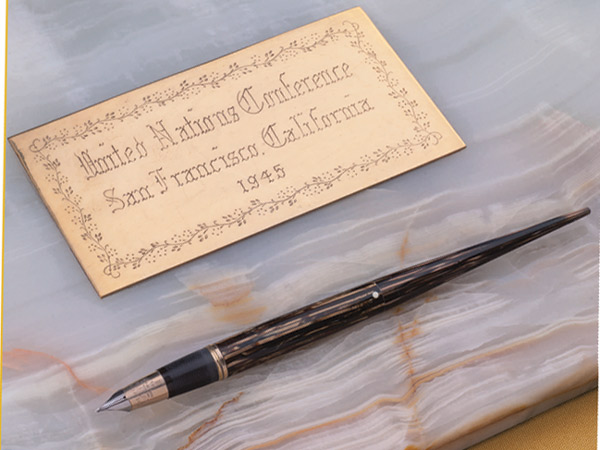 United Nations Conference
San Francisco, California
1945